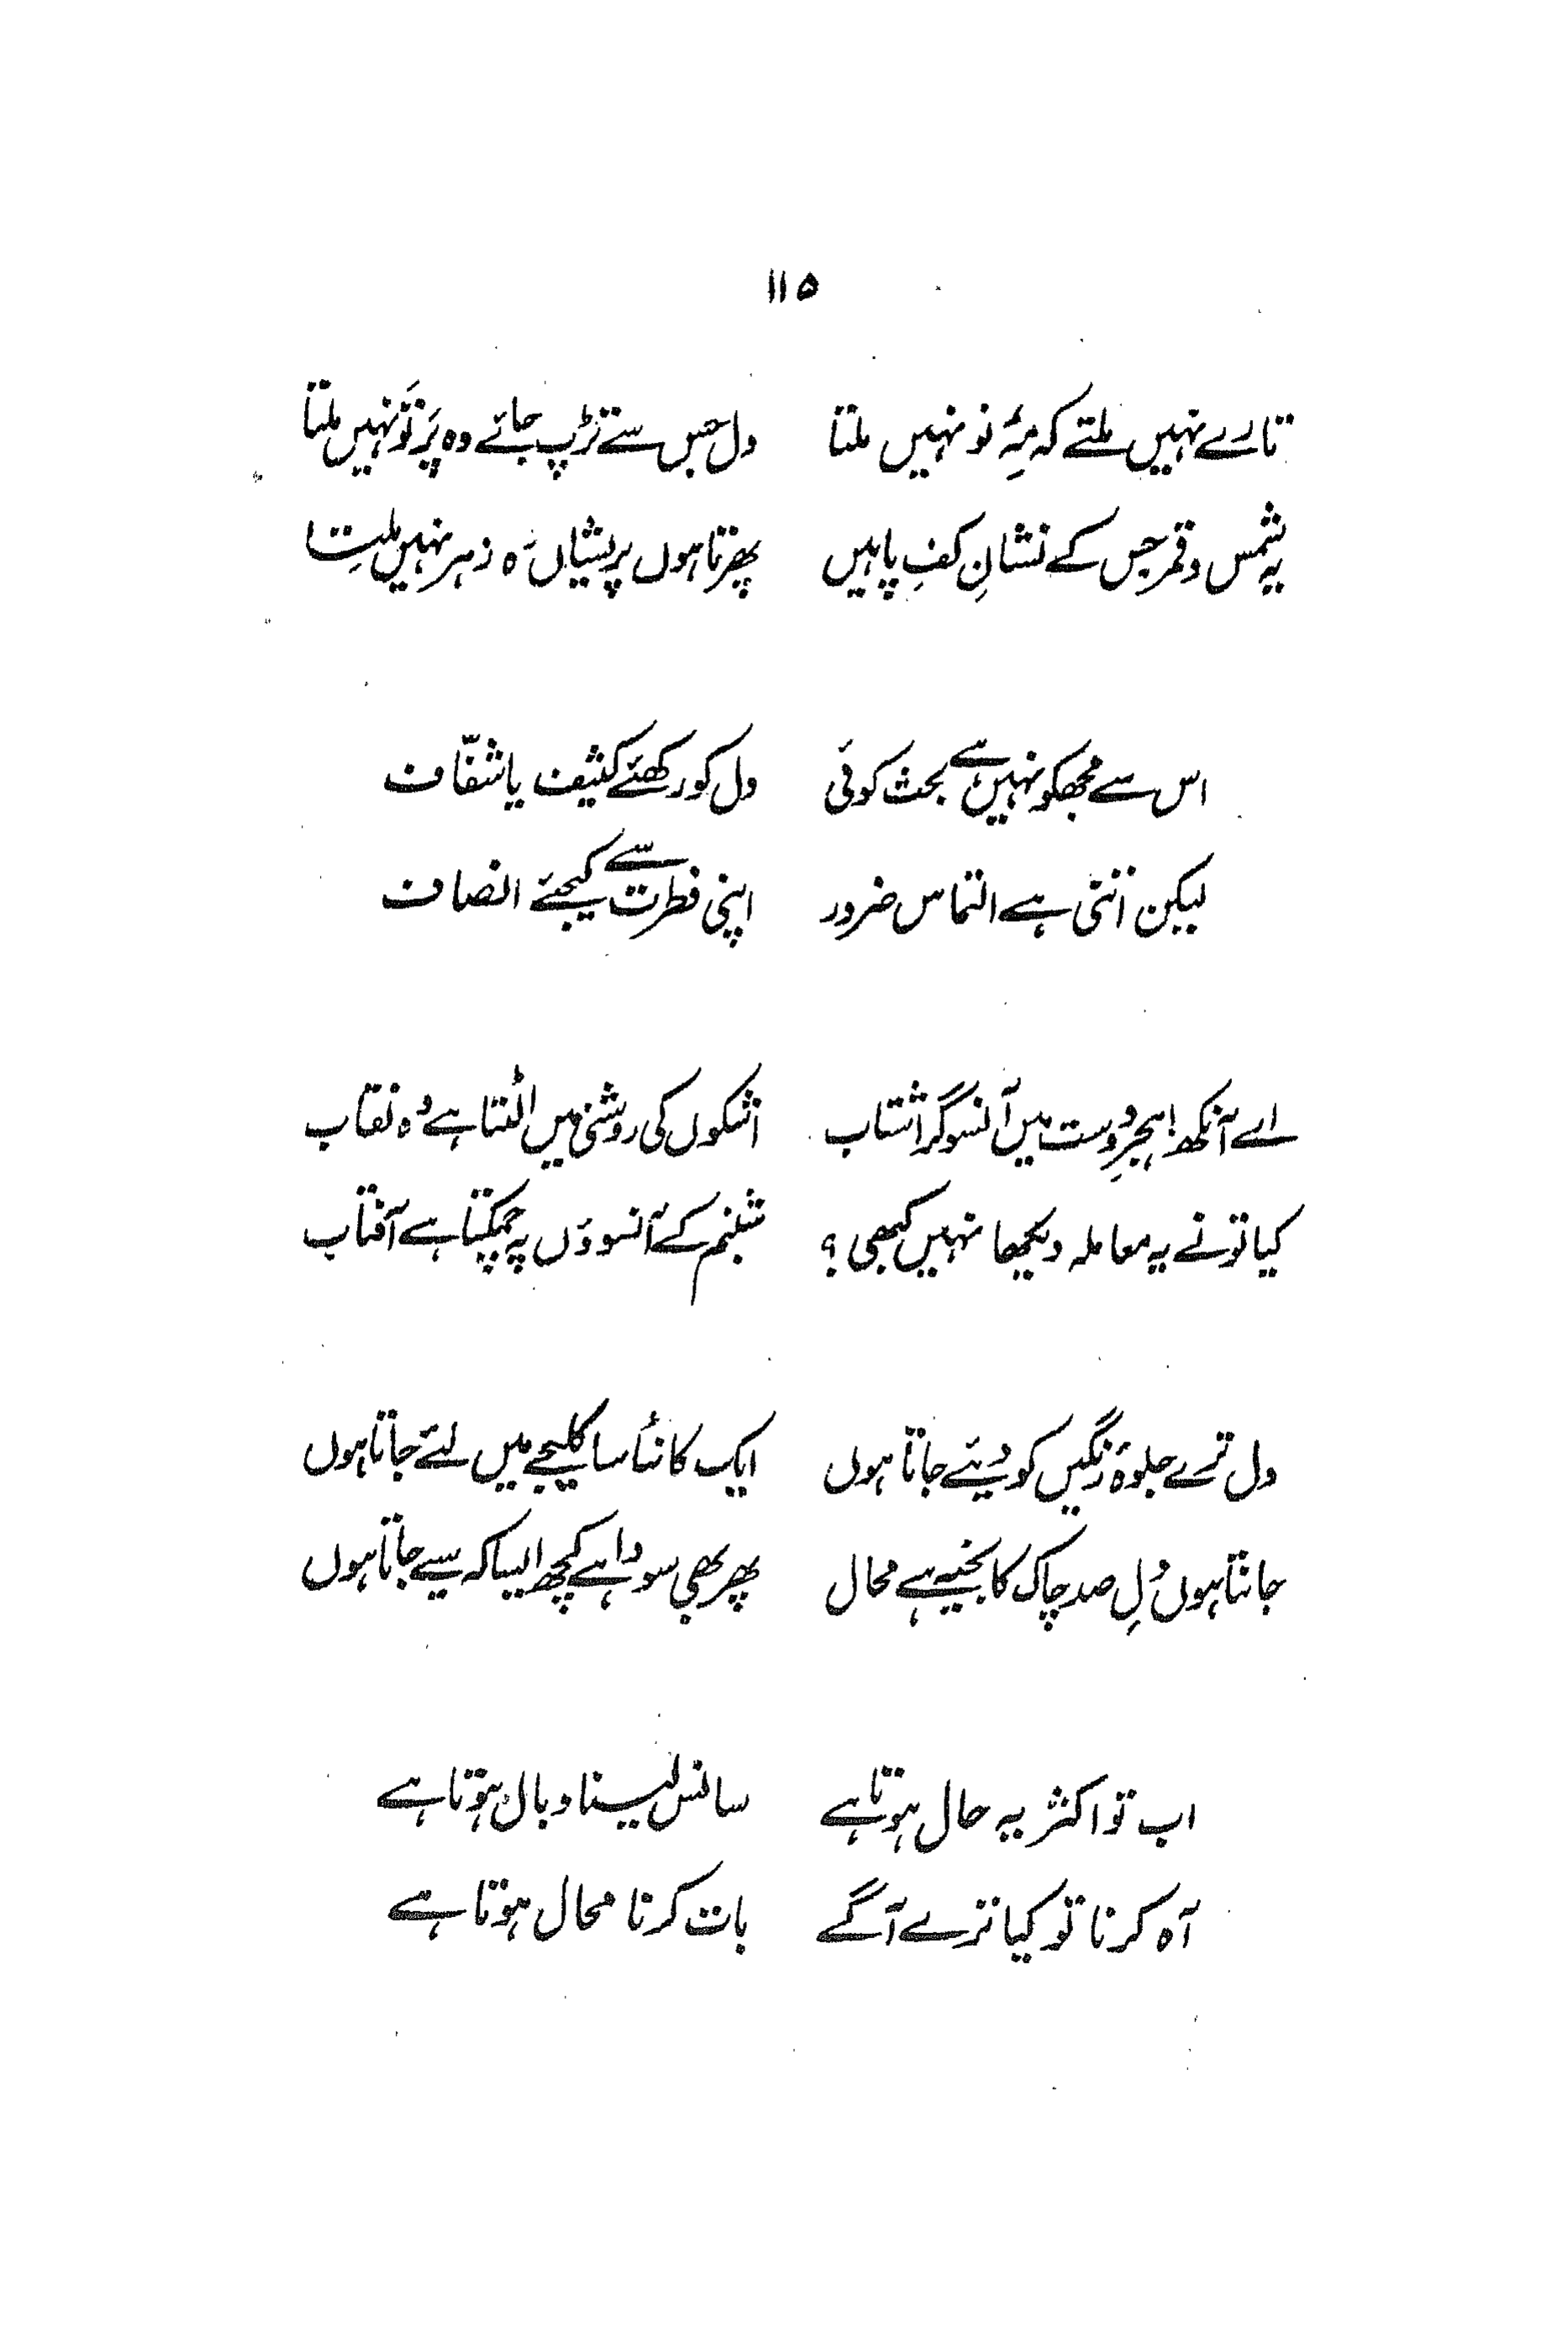 ۱۱۵
تارے نہیں ملتے کہ مہِ نو نہیں ملتا دل جس سے تڑپ جائے وہ پَرتَو نہیں ملتا
یہ شمس و قمر جس کے نشانِ کفِ پا ہیں پھرتا ہوں پریشاں وہ رہرو نہیں ملتا
اس سے مجھکو نہیں ہے بحث کوئی دل کو رکھئے کثیف یا شفّاف
لیکن اتنی ہے التماس ضرور اپنی فطرت سے کیجئے انصاف
اے آنکھ! ہجرِ دوست میں آنسو گرا شتاب اشکوں کی روشنی میں الٹتا ہے وہ نقاب
کیا تو نے یہ معاملہ دیکھا نہیں کبھی؟ شبنم کے آنسوؤں پہ چمکتا ہے آفتاب
دل ترے جلوۂ رنگیں کو دیئے جاتا ہوں ایک کانٹا سا کلیجے میں لئے جاتا ہوں
جانتا ہوں دلِ صد چاک کا بخیہ ہے محال پھر بھی سودا ہے کچھ ایسا کہ سیے جاتا ہوں
اب تو اکثر یہ حال ہوتا ہے سانس لینا وبال ہوتا ہے
آہ کرنا تو کیا ترے آگے بات کرنا محال ہوتا ہے